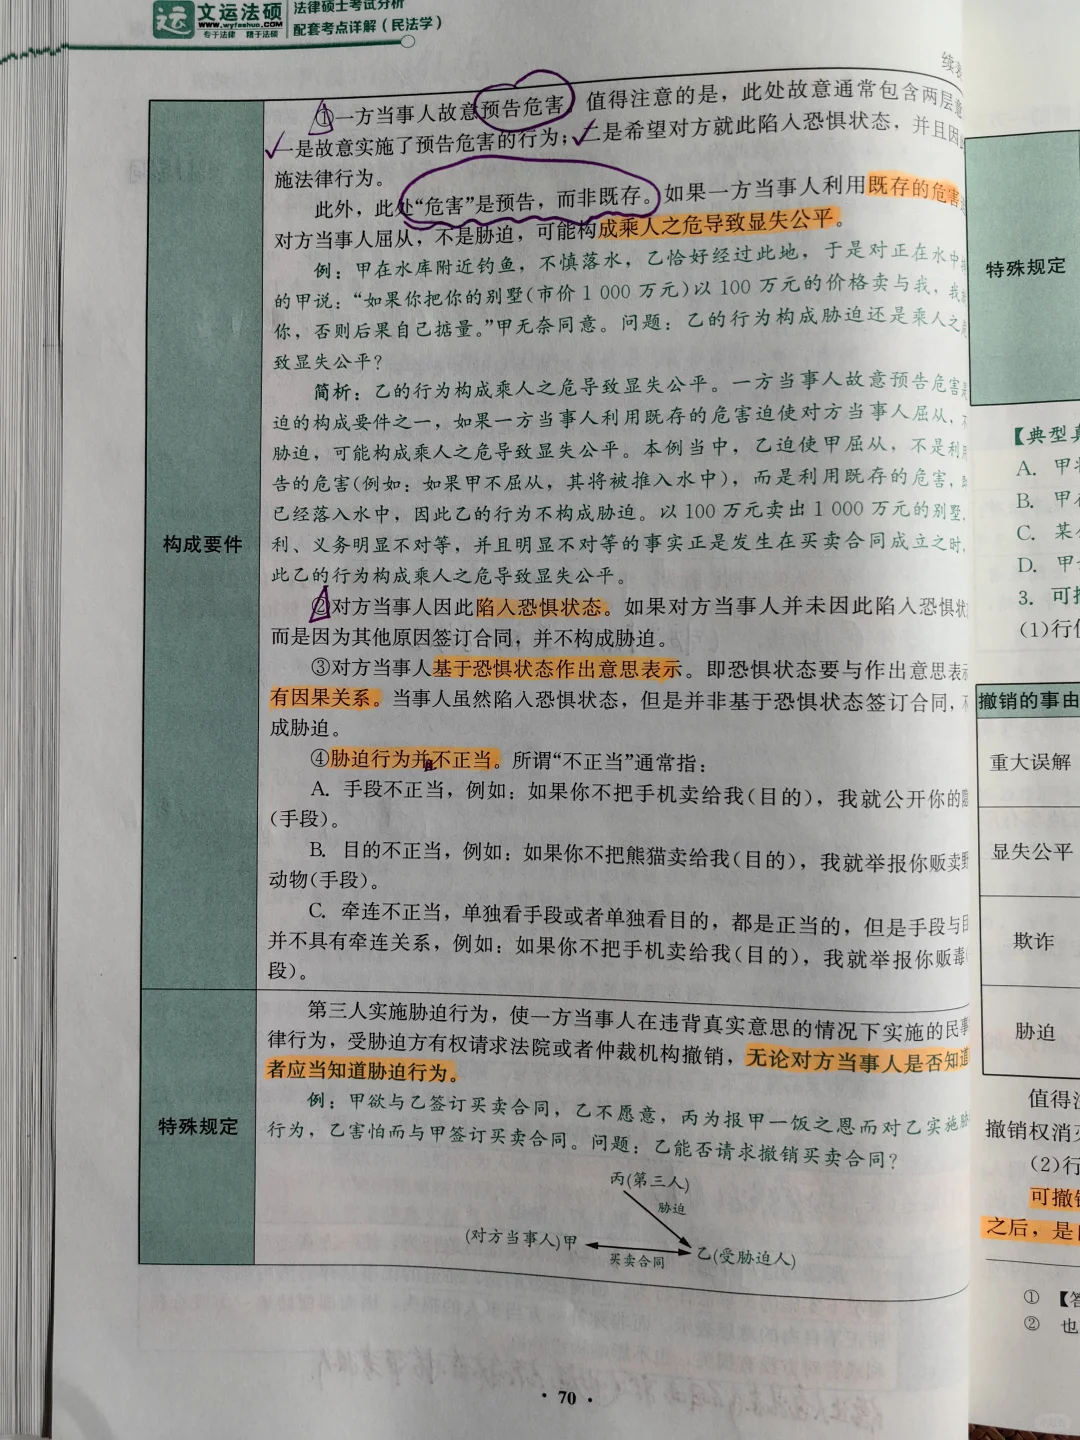 文运法硕
www.wyfashuo.com
专于法律 精于法硕
法律硕士考试分析
配套考点详解(民法学)
续表
构成要件
①一方当事人故意预告危害。值得注意的是，此处故意通常包含两层意
一是故意实施了预告危害的行为；二是希望对方就此陷入恐惧状态，并且因此
施法律行为。
此外，此处“危害”是预告，而非既存。如果一方当事人利用既存的危害
对方当事人屈从，不是胁迫，可能构成乘人之危导致显失公平。
例：甲在水库附近钓鱼，不慎落水，乙恰好经过此地，于是对正在水中
的甲说：“如果你把你的别墅(市价1 000万元)以100万元的价格卖与我，我
你，否则后果自己掂量。”甲无奈同意。问题：乙的行为构成胁迫还是乘人之
致显失公平？
简析：乙的行为构成乘人之危导致显失公平。一方当事人故意预告危害是
迫的构成要件之一，如果一方当事人利用既存的危害迫使对方当事人屈从，不
胁迫，可能构成乘人之危导致显失公平。本例当中，乙迫使甲屈从，不是利用
告的危害(例如：如果甲不屈从，其将被推入水中)，而是利用既存的危害，即
已经落入水中，因此乙的行为不构成胁迫。以100万元卖出1 000万元的别墅，
利、义务明显不对等，并且明显不对等的事实正是发生在买卖合同成立之时，
此乙的行为构成乘人之危导致显失公平。
②对方当事人因此陷入恐惧状态。如果对方当事人并未因此陷入恐惧状
而是因为其他原因签订合同，并不构成胁迫。
③对方当事人基于恐惧状态作出意思表示。即恐惧状态要与作出意思表示
有因果关系。当事人虽然陷入恐惧状态，但是并非基于恐惧状态签订合同，不
成胁迫。
④胁迫行为并不正当。所谓“不正当”通常指：
A. 手段不正当，例如：如果你不把手机卖给我(目的)，我就公开你的隐
(手段)。
B. 目的不正当，例如：如果你不把熊猫卖给我(目的)，我就举报你贩卖野
动物(手段)。
C. 牵连不正当，单独看手段或者单独看目的，都是正当的，但是手段与目
并不具有牵连关系，例如：如果你不把手机卖给我(目的)，我就举报你贩毒(
段)。
特殊规定
第三人实施胁迫行为，使一方当事人在违背真实意思的情况下实施的民事
律行为，受胁迫方有权请求法院或者仲裁机构撤销，无论对方当事人是否知道
者应当知道胁迫行为。
例：甲欲与乙签订买卖合同，乙不愿意，丙为报甲一饭之恩而对乙实施胁
行为，乙害怕而与甲签订买卖合同。问题：乙能否请求撤销买卖合同？
丙(第三人)
胁迫
(对方当事人)甲
买卖合同
乙(受胁迫人)
· 70 ·
特殊规定
【典型真
A. 甲将
B. 甲
C. 某
D. 甲
3. 可
(1)行
撤销的事由
重大误解
显失公平
欺诈
胁迫
值得注
撤销权消灭
(2)行
可撤销
之后，是
① 【答
② 也